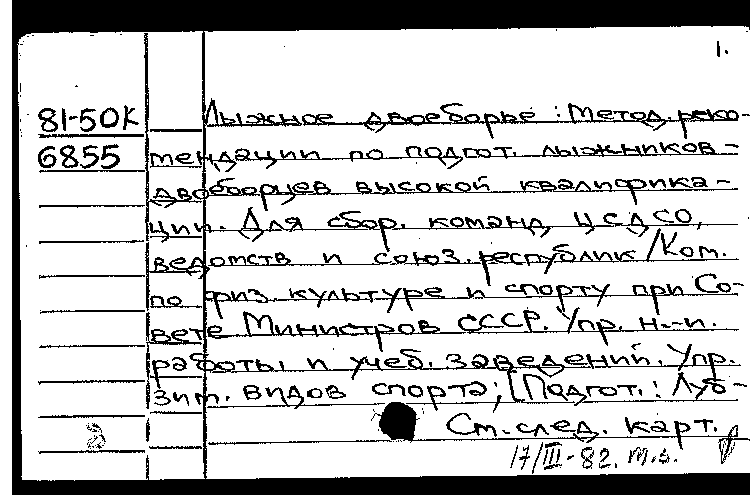 1.
81-50К Лыжное двоеборье : Метод. реко-
6855 мендации по подгот. лыжников-
двоеборцев высокой квалифика-
ции. Для сбор. команд ЦСДСО,
ведомств и союз. республик / Ком.
по физ. культуре и спорту при Со-
вете Министров СССР. Упр. н.-и.
работы и учеб. заведений. Упр.
зим. видов спорта; [Подгот.: Луб-
См. след. карт.
17/III-82. т.з.